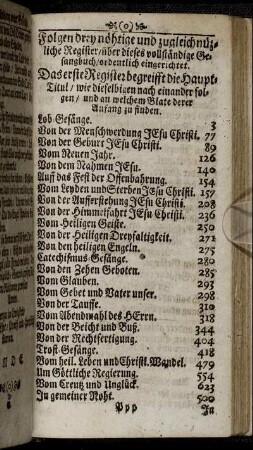 (o)
Folgen drey nöhtige und zugleich nüz-
liche Register / über dieses vollständige Ge-
sangbuch / ordentlich eingerichtet.
Das erste Register begreifft die Haupt-
Titul / wie dieselbigen nach einander fol-
gen / und an welchem Blate derer
Anfang zu finden.
Lob-Gesänge. 3
Von der Menschwerdung JEsu Christi. 77
Von der Geburt JEsu Christi. 89
Vom Neuen Jahr. 126
Von dem Nahmen JEsu. 140
Auff das Fest der Offenbahrung. 154
Vom Leyden und Sterben JEsu Christi. 157
Von der Aufferstehung JEsu Christi. 208
Von der Himmelfahrt JEsu Christi. 236
Vom Heiligen Geiste. 250
Von der Heiligen Dreyfaltigkeit. 271
Von den heiligen Engeln. 275
Catechismus-Gesänge. 280
Von den Zehen Geboten. 285
Vom Glauben. 293
Vom Gebet und Vater unser. 298
Von der Tauffe. 310
Vom Abendwahl des HErrn. 318
Von der Beicht und Buß. 344
Von der Rechtfertigung. 404
Trost-Gesänge. 418
Vom heil. Leben und Christl. Wandel. 479
Um Göttliche Regierung. 554
Vom Creutz und Unglück. 623
In gemeiner Noht. 500
Ppp In